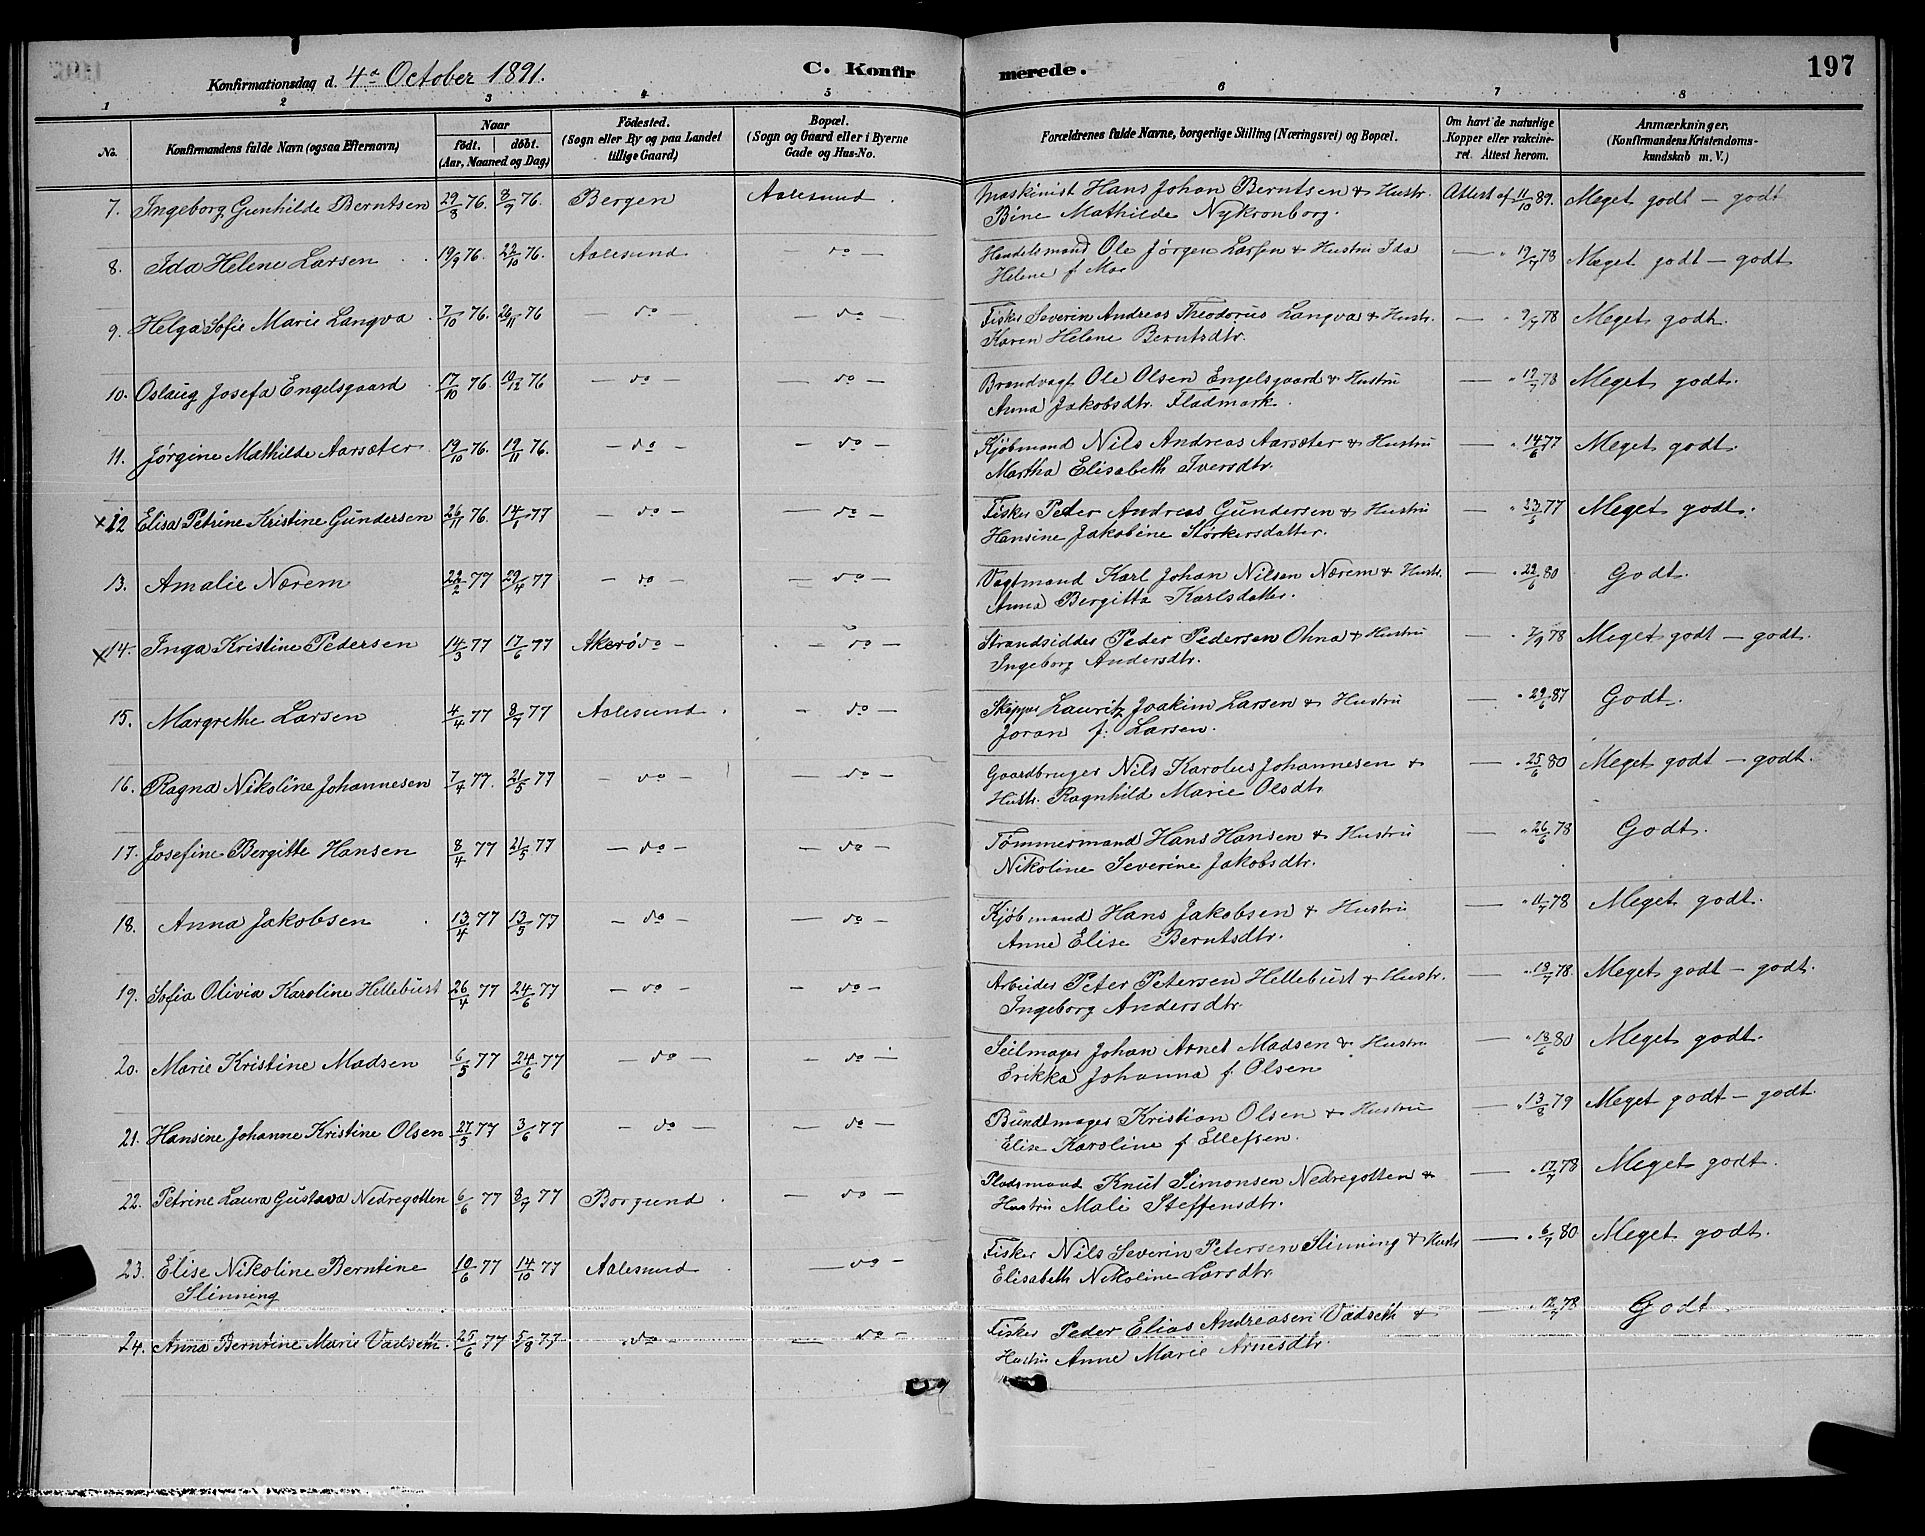 Konfirmationsdag d. 4de October 1891. C. Konfirmerede. 197
1 2 3 4 5 6 7 8
No. Konfirmandens fulde Navn (ogsaa Efternavn) Naar født. døbt. (Aar, Maaned og Dag) Fødested. (Sogn eller By og paa Landet tillige Gaard) Bopæl. (Sogn og Gaard eller i Byerne Gade og Hus-No. Forældrenes fulde Navne, borgerlige Stilling (Næringsvei) og Bopæl. Om havt de naturlige Kopper eller vakcineret. Attest herom. Anmærkninger. (Konfirmandens Kristendomskundskab m. V.)
7. Ingeborg Gunhilde Berntsen 29/8 76. 8/9 76. Bergen Aalesund. Maskinist Hans Johan Berntsen & Hustr. Attest af 11/10 89. Meget godt – godt
Bine Mathilde Nykronborg.
8. Ida Helene Larsen 19/9 76. 22/10 76. Aalesund — do — Handelsmand Ole Jørgen Larsen & Hustru Ida — " 19/7 78 Meget godt – godt
Helene f. Moe
9. Helga Sofie Marie Langva 7/10 76. 26/11 76 — do — do — Fisker Severin Andreas Theodorus Langva & Hustr. — " 9/7 78 Meget godt.
Karen Helene Berntsdtr.
10. Oslaug Josefa Engelsgaard 17/10 76. 10/12 76 — do — — do — Brandvagt Ole Olsen Engelsgaard & Hustru — " 19/7 78 Meget godt.
Anna Jakobsdtr. Fladmark.
11. Jørgine Mathilde Aarsæter 19/10 76. 19/11 76. — do — — do — Kjøbmand Nils Andreas Aarsæter & Hustru — " 14/6 77 Meget godt.
Martha Elisabeth Iversdtr.
x 12 Elisa Petrine Kristine Gundersen 26/11 76. 14/1 77 — do — — do — Fisker Peder Andreas Gundersen & Hustru — " 23/6 77 Meget godt.
Hansine Jakobine Størkersdatter.
13. Amalie Nærem 22/2 77 29/4 77 — do — — do — Vagtmand Karl Johan Nilsen Nærem & Hustr. — " 22/6 80 Godt.
Anna Bergitta Karlsdatter.
x 14. Inga Kristine Pedersen 14/3 77 17/6 77 Akerø do — — do — Strandsidder Peder Pedersen Ohna & Hustru — " 7/9 78 Meget godt – godt.
Ingeborg Andersdtr.
15. Margrethe Larsen 4/4 77 8/7 77 Aalesund. — do — Skipper Lauritz Joakim Larsen & Hustru — " 29/6 87 Godt.
Joran f. Larsen.
16. Ragna Nikoline Johannesen 7/4 77. 21/5 77 — do — — do — Gaardbruger Nils Karolus Johannesen & — " 25/6 80 Meget godt – godt.
Hustr. Ragnhild Marie Olsdtr
17. Josefine Bergitte Hansen 8/4 77 21/5 77 — do — — do — Tømmermand Hans Hansen & Hustru — " 26/6 78 Godt.
Nikoline Severine Jakobsdtr.
18. Anna Jakobsen 13/4 77 13/5 77 — do — — do — Kjøbmand Hans Jakobsen & Hustru — " 11/7 78 Meget godt.
Anne Elise Berntsdtr.
19. Sofia Olivia Karoline Hellebust 26/4 77 24/6 77 — do — — do — Arbeider Peter Petersen Hellebust & Hustr. — " 19/7 78. Meget godt – godt.
Ingeborg Andersdtr.
20. Marie Kristine Madsen 6/5 77 24/6 77 — do — — do — Seilmager Johan Arnet Madsen & Hustru — " 18/6 80 Meget godt.
Erikka Johanna f. Olsen
21. Hansine Johanne Kristine Olsen 27/5 77 3/6 77 — do — — do — Bundtmager Kristian Olsen & Hustru — " 13/8 79 Meget godt – godt.
Elise Karoline f. Ellefsen.
22. Petrine Laura Gustava Nedregotten 6/6 77 8/7 77 Borgund. — do — Pladsmand Knut Simonsen Nedregotten & — " 17/7 78 Meget godt.
Hustru Mali Steffensdtr.
23. Elise Nikoline Berntine 10/6 77 14/10 77 Aalesund. — do — Fisker Nils Severin Petersen Slinning & Hustr — " 6/7 80 Meget godt.
Slinning Elisabeth Nikoline Larsdtr.
24. Anna Berntine Marie Vadseth. 25/6 77 5/8 77. do — — do — Fisker Peder Elias Andreasen Vadseth & — " 12/7 78 Godt
Hustru Anne Marie Arnesdtr.